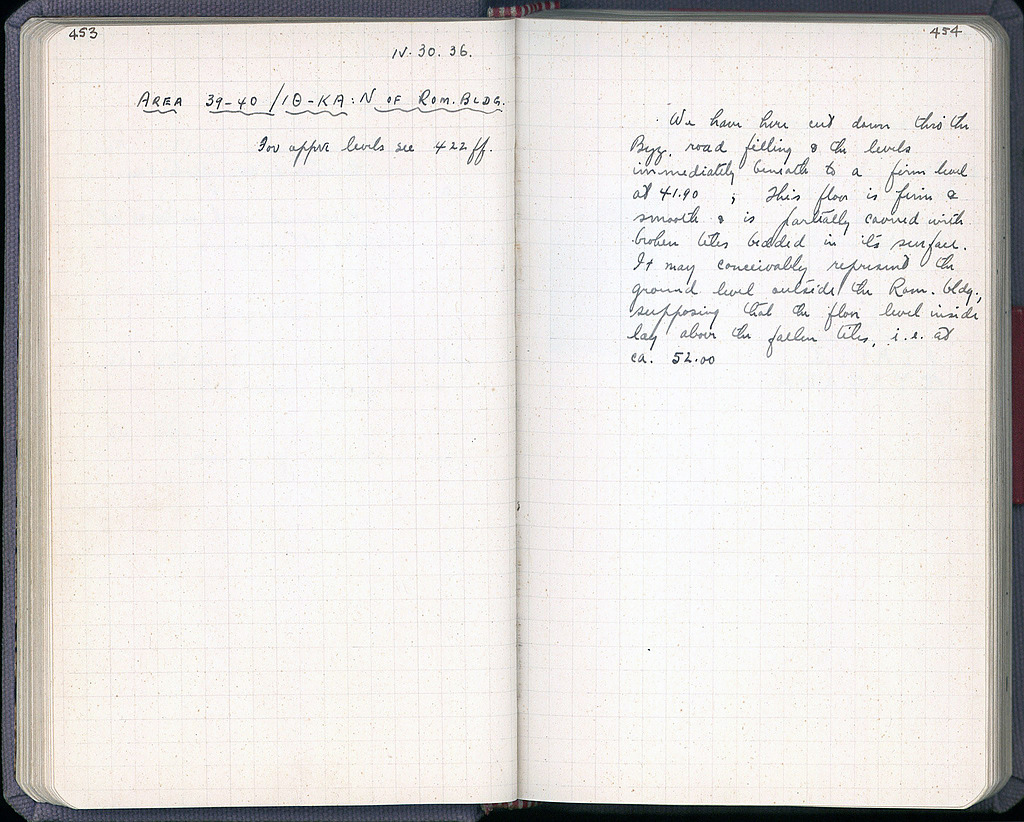 453
IV. 30. 36.
AREA 39-40 / ΙΘ-ΚΑ: N OF ROM. BLDG.
For appve levels see 422 ff.
454
We have here cut down thro the
Byz. road filling & the levels
immediately beneath to a firm level
at 41.90 ; This floor is firm &
smooth & is partially covered with
broken tiles bedded in its surface.
It may conceivably represent the
ground level outside the Rom. bldg.,
supposing that the floor level inside
lay above the fallen tiles, i.e. at
ca. 52.00